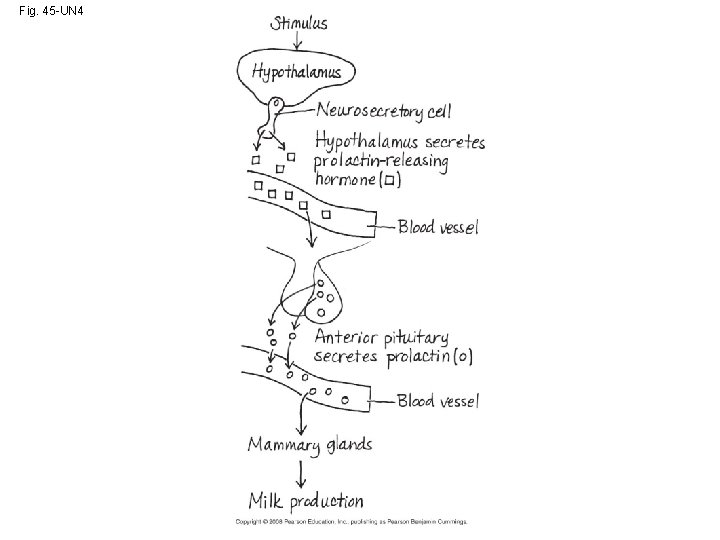 Fig. 45-UN4
Stimulus
Hypothalamus
Neurosecretory cell
Hypothalamus secretes
prolactin-releasing
hormone (□)
Blood vessel
Anterior pituitary
secretes prolactin (○)
Blood vessel
Mammary glands
Milk production
Copyright © 2008 Pearson Education, Inc., publishing as Pearson Benjamin Cummings.